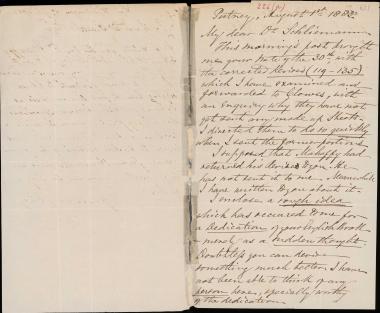 Putney, August 1st 1883
My dear Dr Schliemann
This morning's post brought
me your note of the 30th, with
the corrected revises (119–135)
which I have examined and
forwarded to Clowes, with
an enquiry why they have not
yet sent any made up sheets.
I directed them to do so quickly
when I sent the former portions
I supposed that Mahaffy had
returned his revises to you. He
has not sent it to me. Meanwhile
I have written to you about it.
I enclose a rough idea
which has occurred to me for
a Dedication of your English book
merely as a sudden thought.
Doubtless you can devise
something much better. I have
not been able to think of any
person here, specially worthy
of the dedication